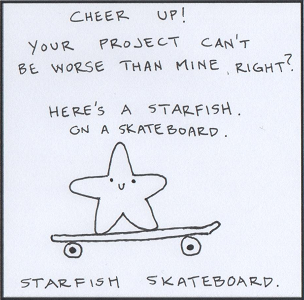 CHEER UP!
YOUR PROJECT CAN'T
BE WORSE THAN MINE, RIGHT?
HERE'S A STARFISH.
ON A SKATEBOARD.
STARFISH SKATEBOARD.